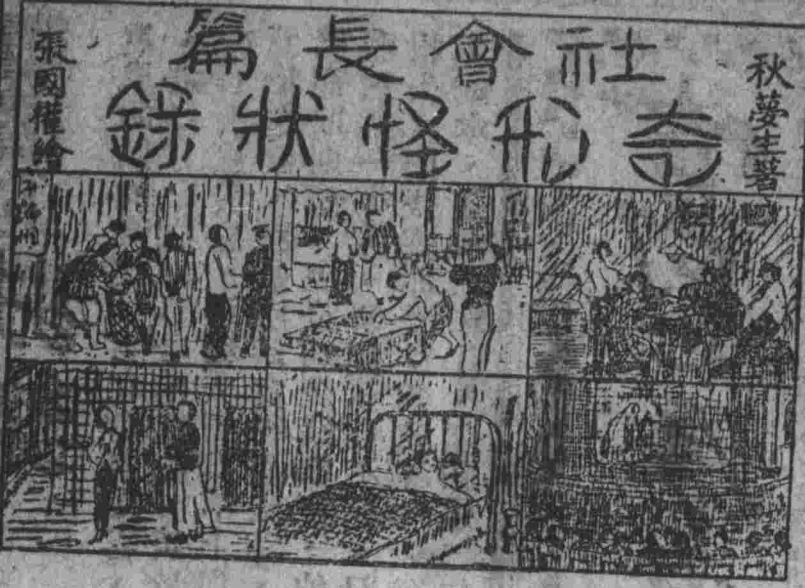 社會長篇
奇形怪狀錄
秋夢生著
張國權繪